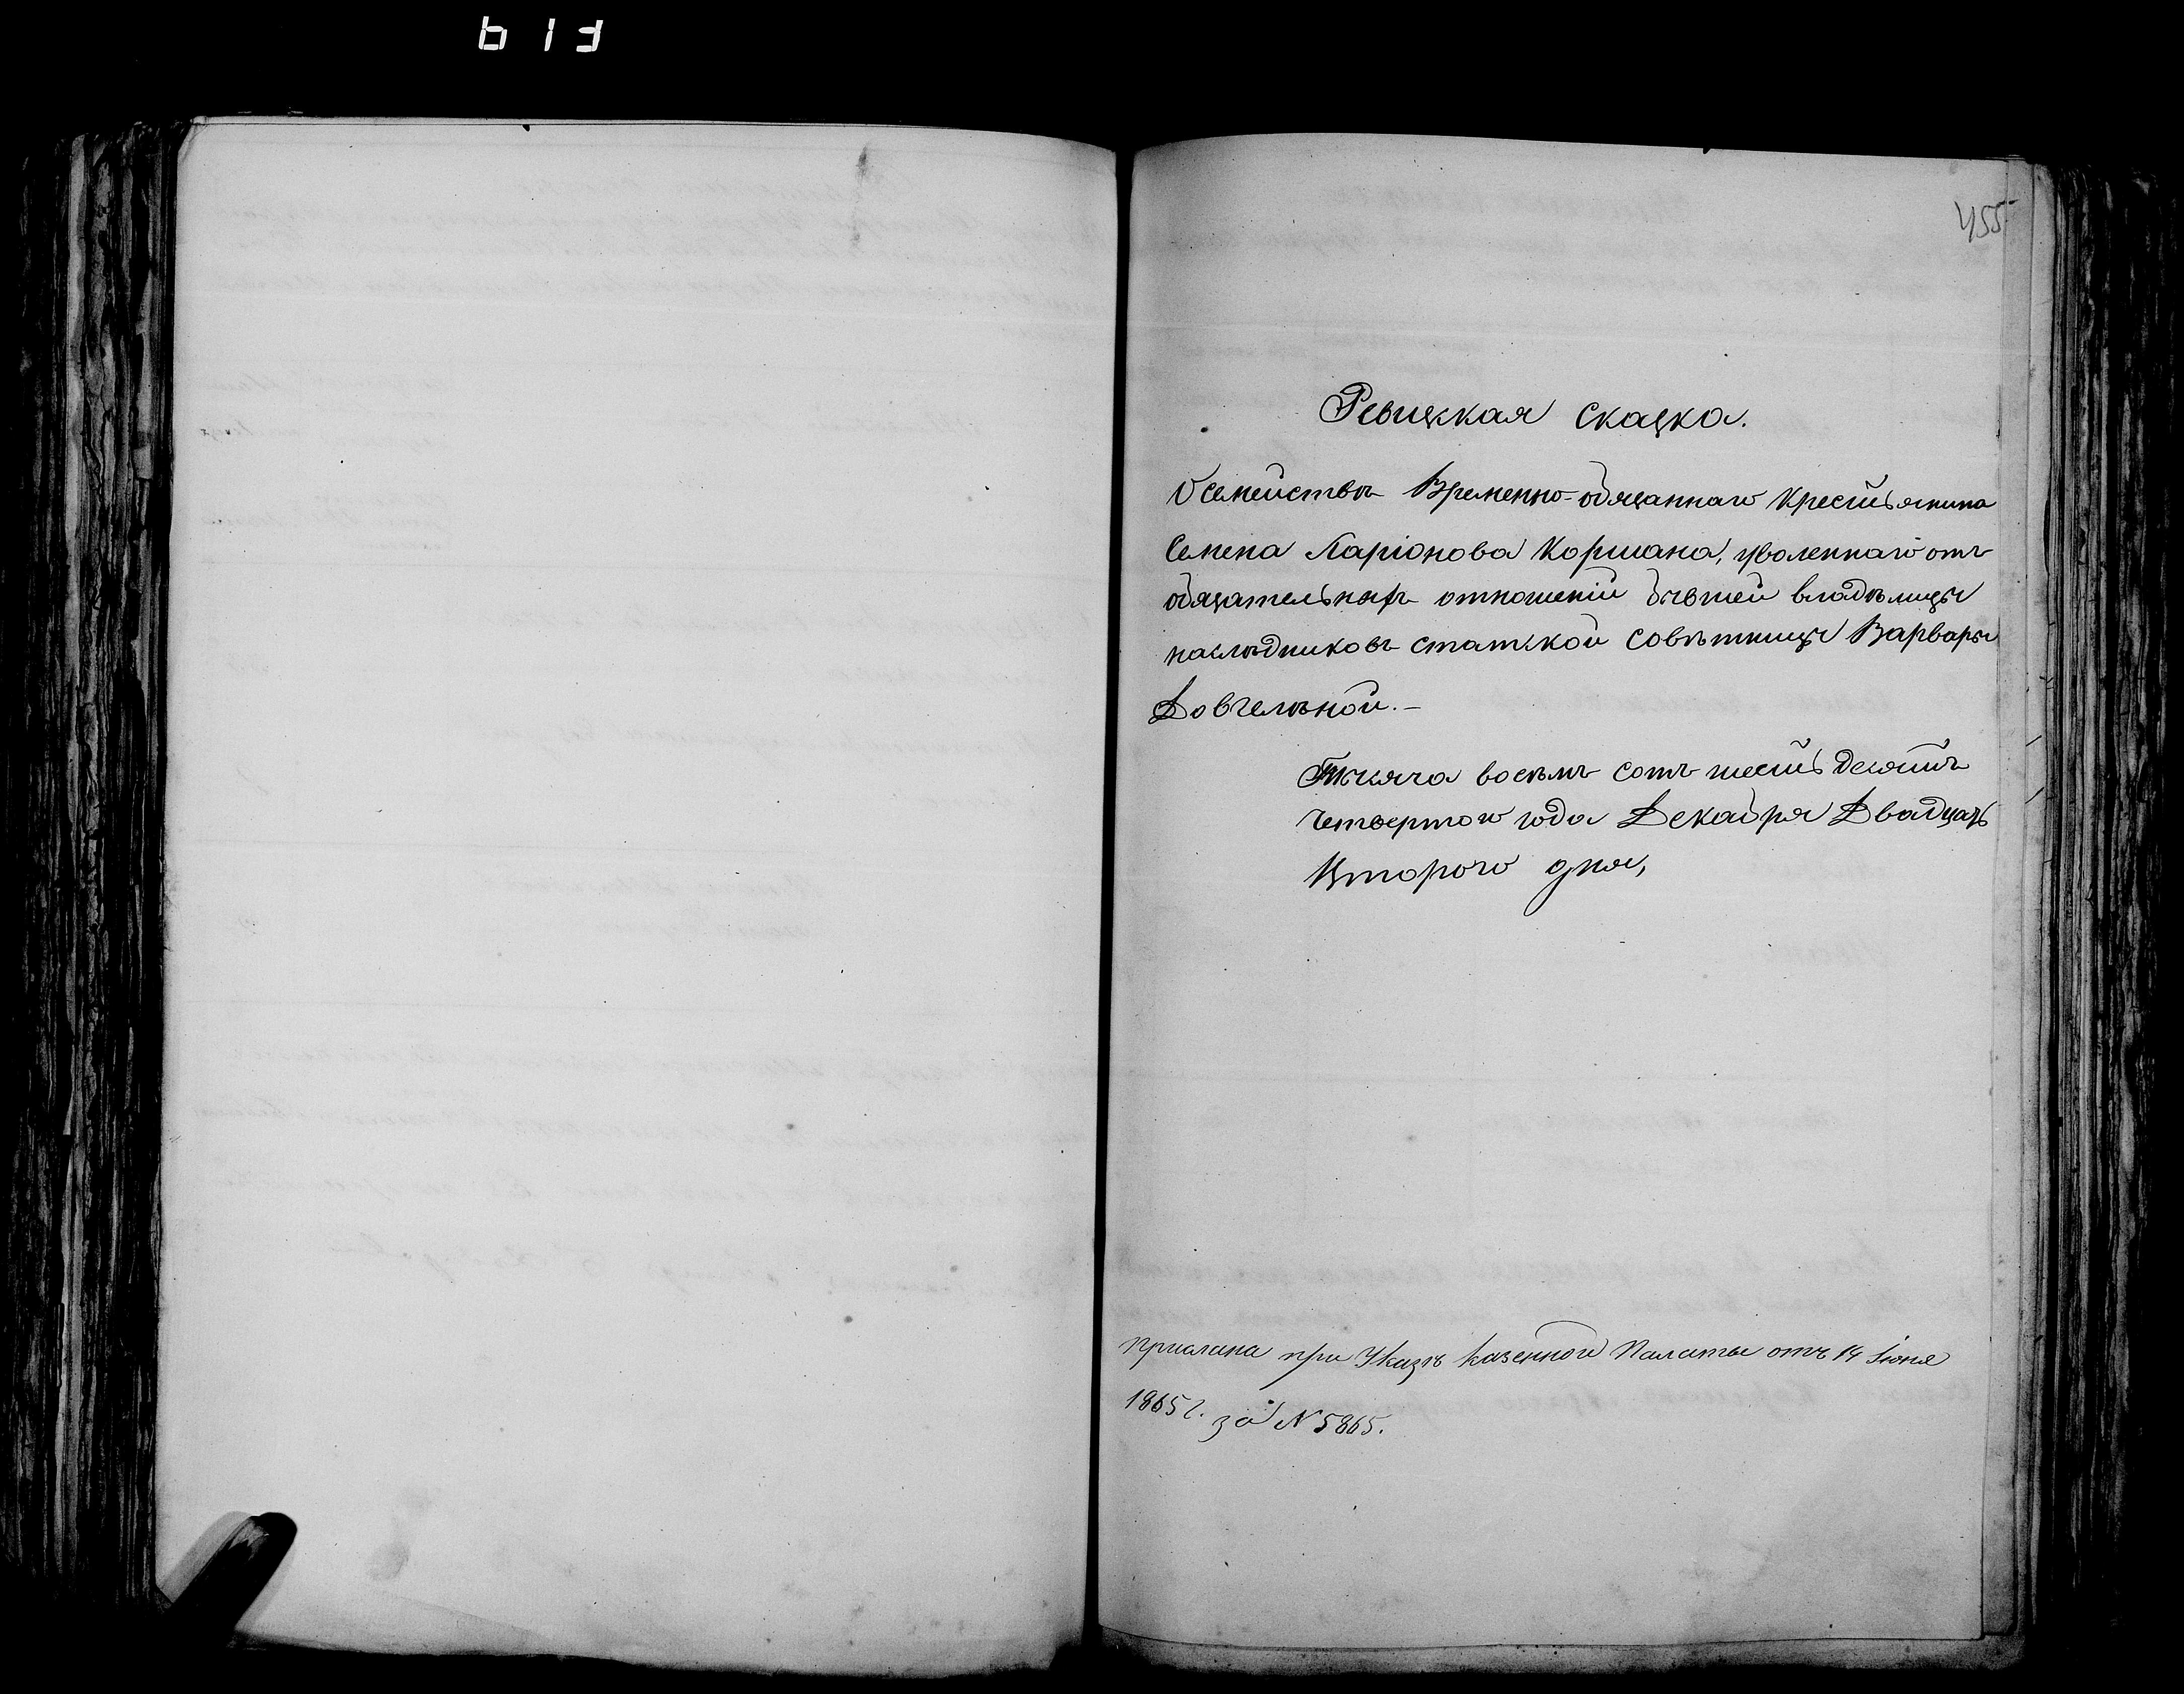 613
455
Ревизкая сказка.
О семействѣ Временно-обязаннаго Крестьянина
Семена Ларіонова Коршана, уволеннаго отъ
обязательныхъ отношеній бывшей владѣлицы
наслѣдниковъ статской совѣтницы Варвары
Довгелѣной.-
Тысяча восѣмъ сотъ шестьдесятъ
четвертого года Декабря Двадцать
Второго дня,
Прислана при Указѣ Казенной Палаты отъ 14 Іюня
1865 г. за № 5865.